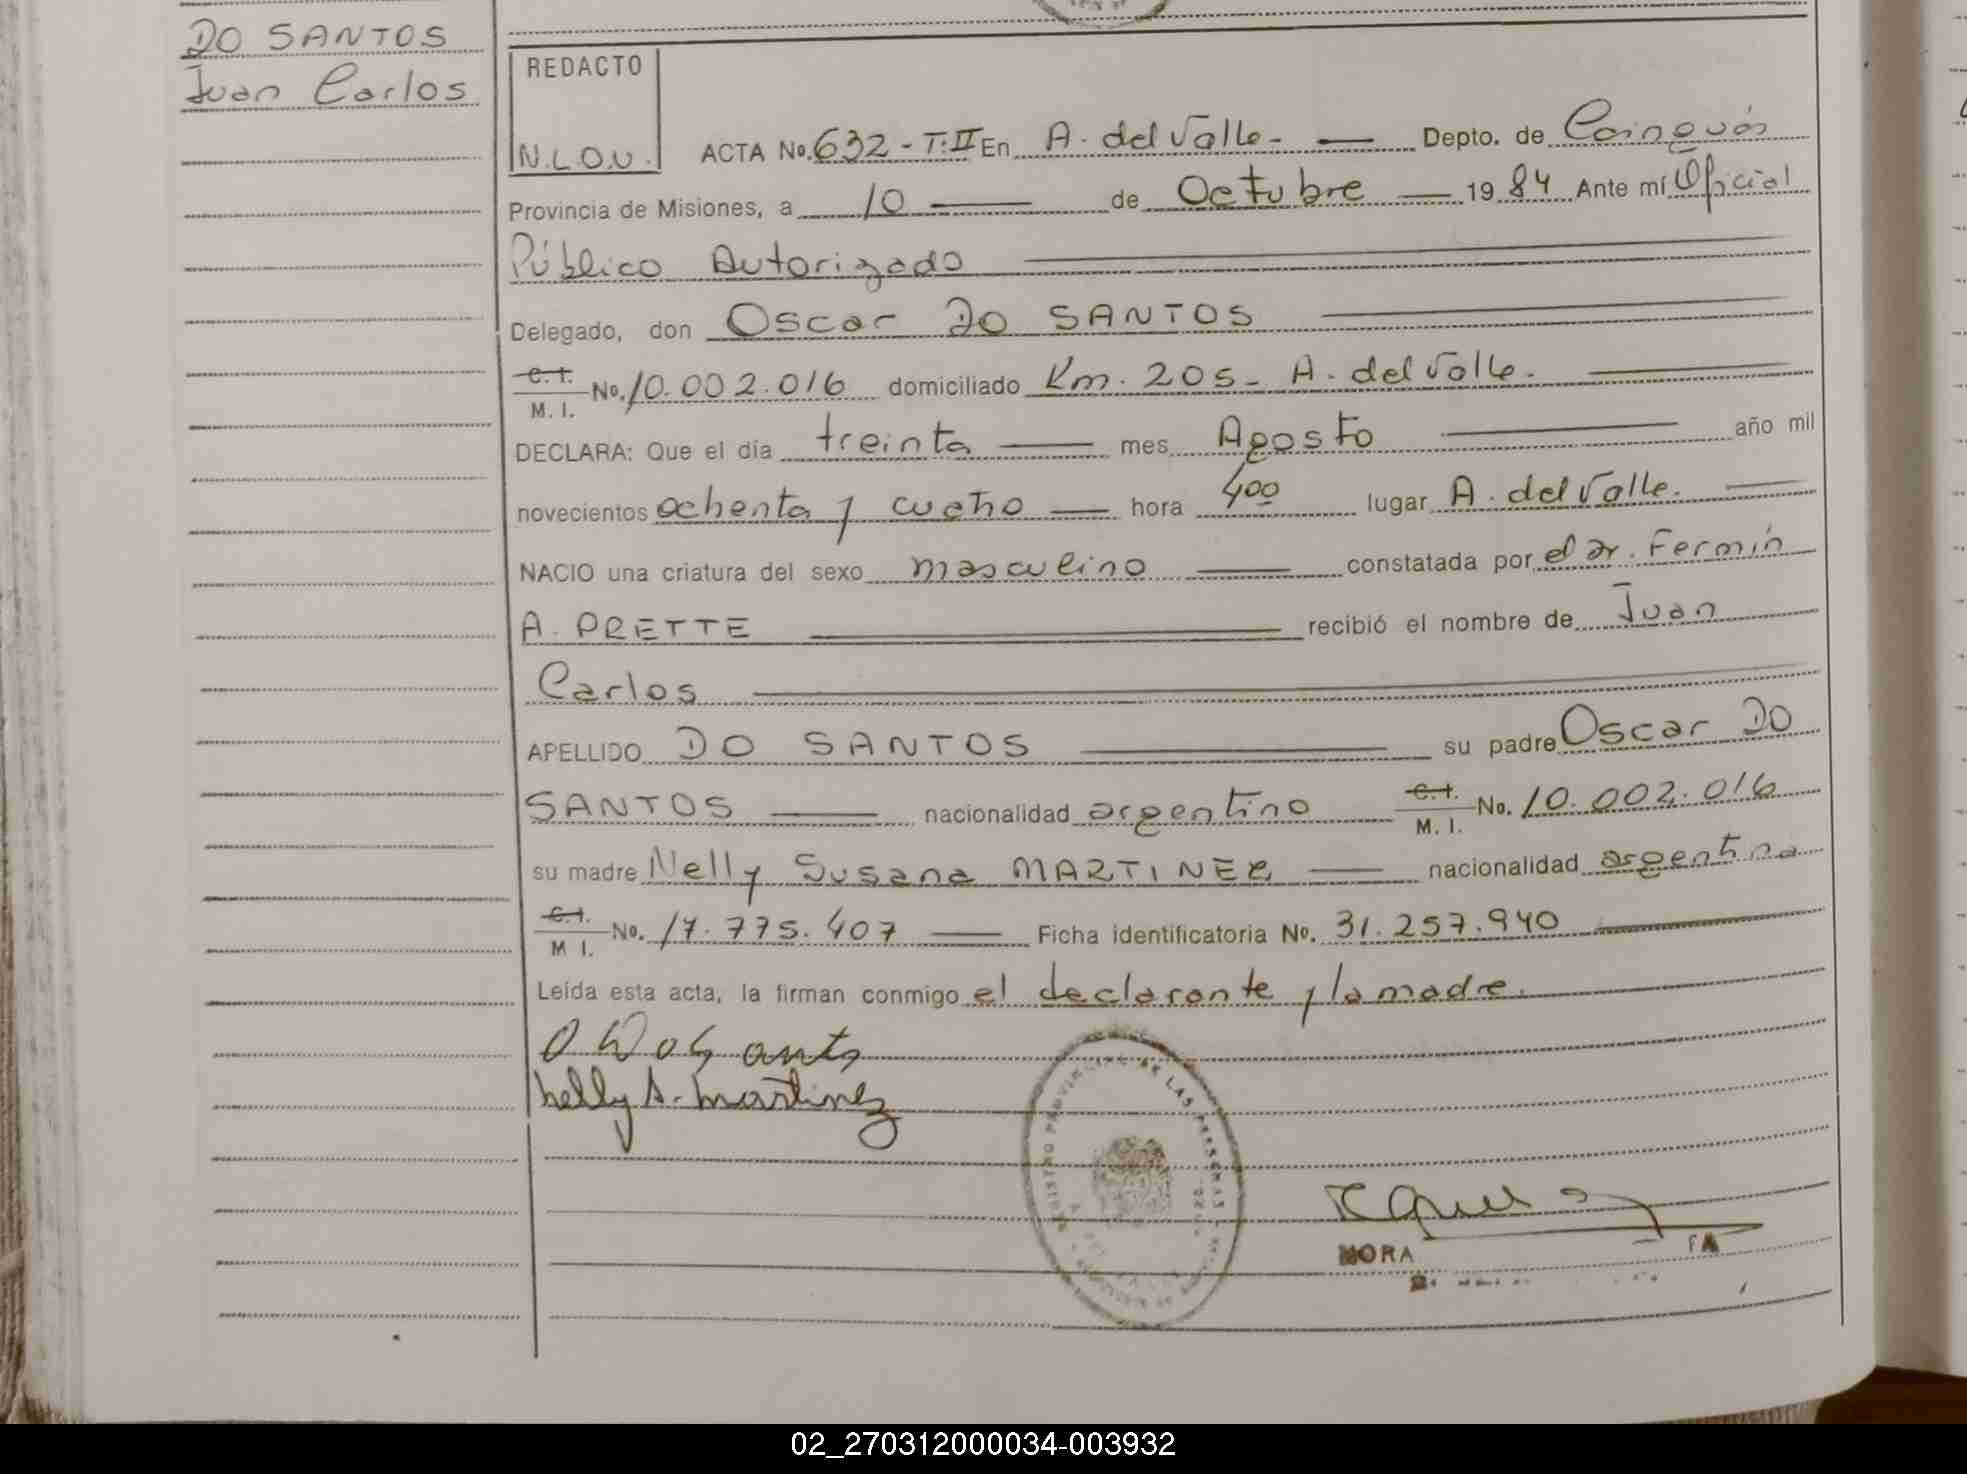 DO SANTOS
Juan Carlos
REDACTO
N.L.O.V.
ACTA No. 632 - T: II En A. del Valle - Depto. de Cainguás
Provincia de Misiones, a 10 de Octubre 19 84 Ante mí Oficial
Público Autorizado
Delegado, don Oscar DO SANTOS
C. I. M. I. No. 10.002.016 domiciliado Km. 205 - A. del Valle.
DECLARA: Que el día treinta mes Agosto año mil
novecientos ochenta y cuatro hora 400 lugar A. del Valle.
NACIO una criatura del sexo masculino constatada por el Dr. Fermín
A. PRETTE recibió el nombre de Juan
Carlos
APELLIDO DO SANTOS su padre Oscar DO
SANTOS nacionalidad argentino C. I. M. I. No. 10.002.016
su madre Nelly Susana MARTINEZ nacionalidad argentina
C. I. M I. No. 17.775.407 Ficha identificatoria No. 31.257.940
Leída esta acta, la firman conmigo el declarante y la madre.
Nelly S. Martinez
REGISTRO PROVINCIAL DE LAS PERSONAS
NORA
02_270312000034-003932